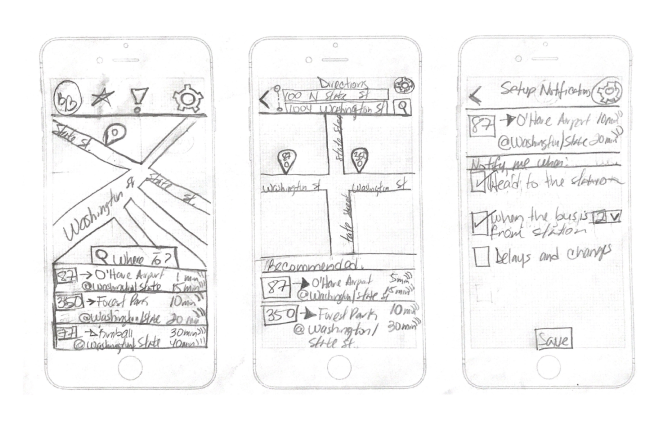 BB
State St
Washington St
State St
Where To?
87 → O'Hare Airport 1 min
@Washington/State 15 min
350 → Forest Park 10 min
@Washington/State 20 min
77 → Kimball 30 min
@Washington/State 40 min
Directions
100 N State St
1004 Washington St
State Street
87
Washington St
Washington St
State Street
Recommended
87 → O'Hare Airport 5 min
@Washington/State St 15 min
350 → Forest Park 10 min
@Washington/ 30 min
State St.
Setup Notification
87 → O'Hare Airport 10 min
@Washington/State 20 min
Notify me when:
Head to the station
When the bus is 2
from station
Delays and changes
Save